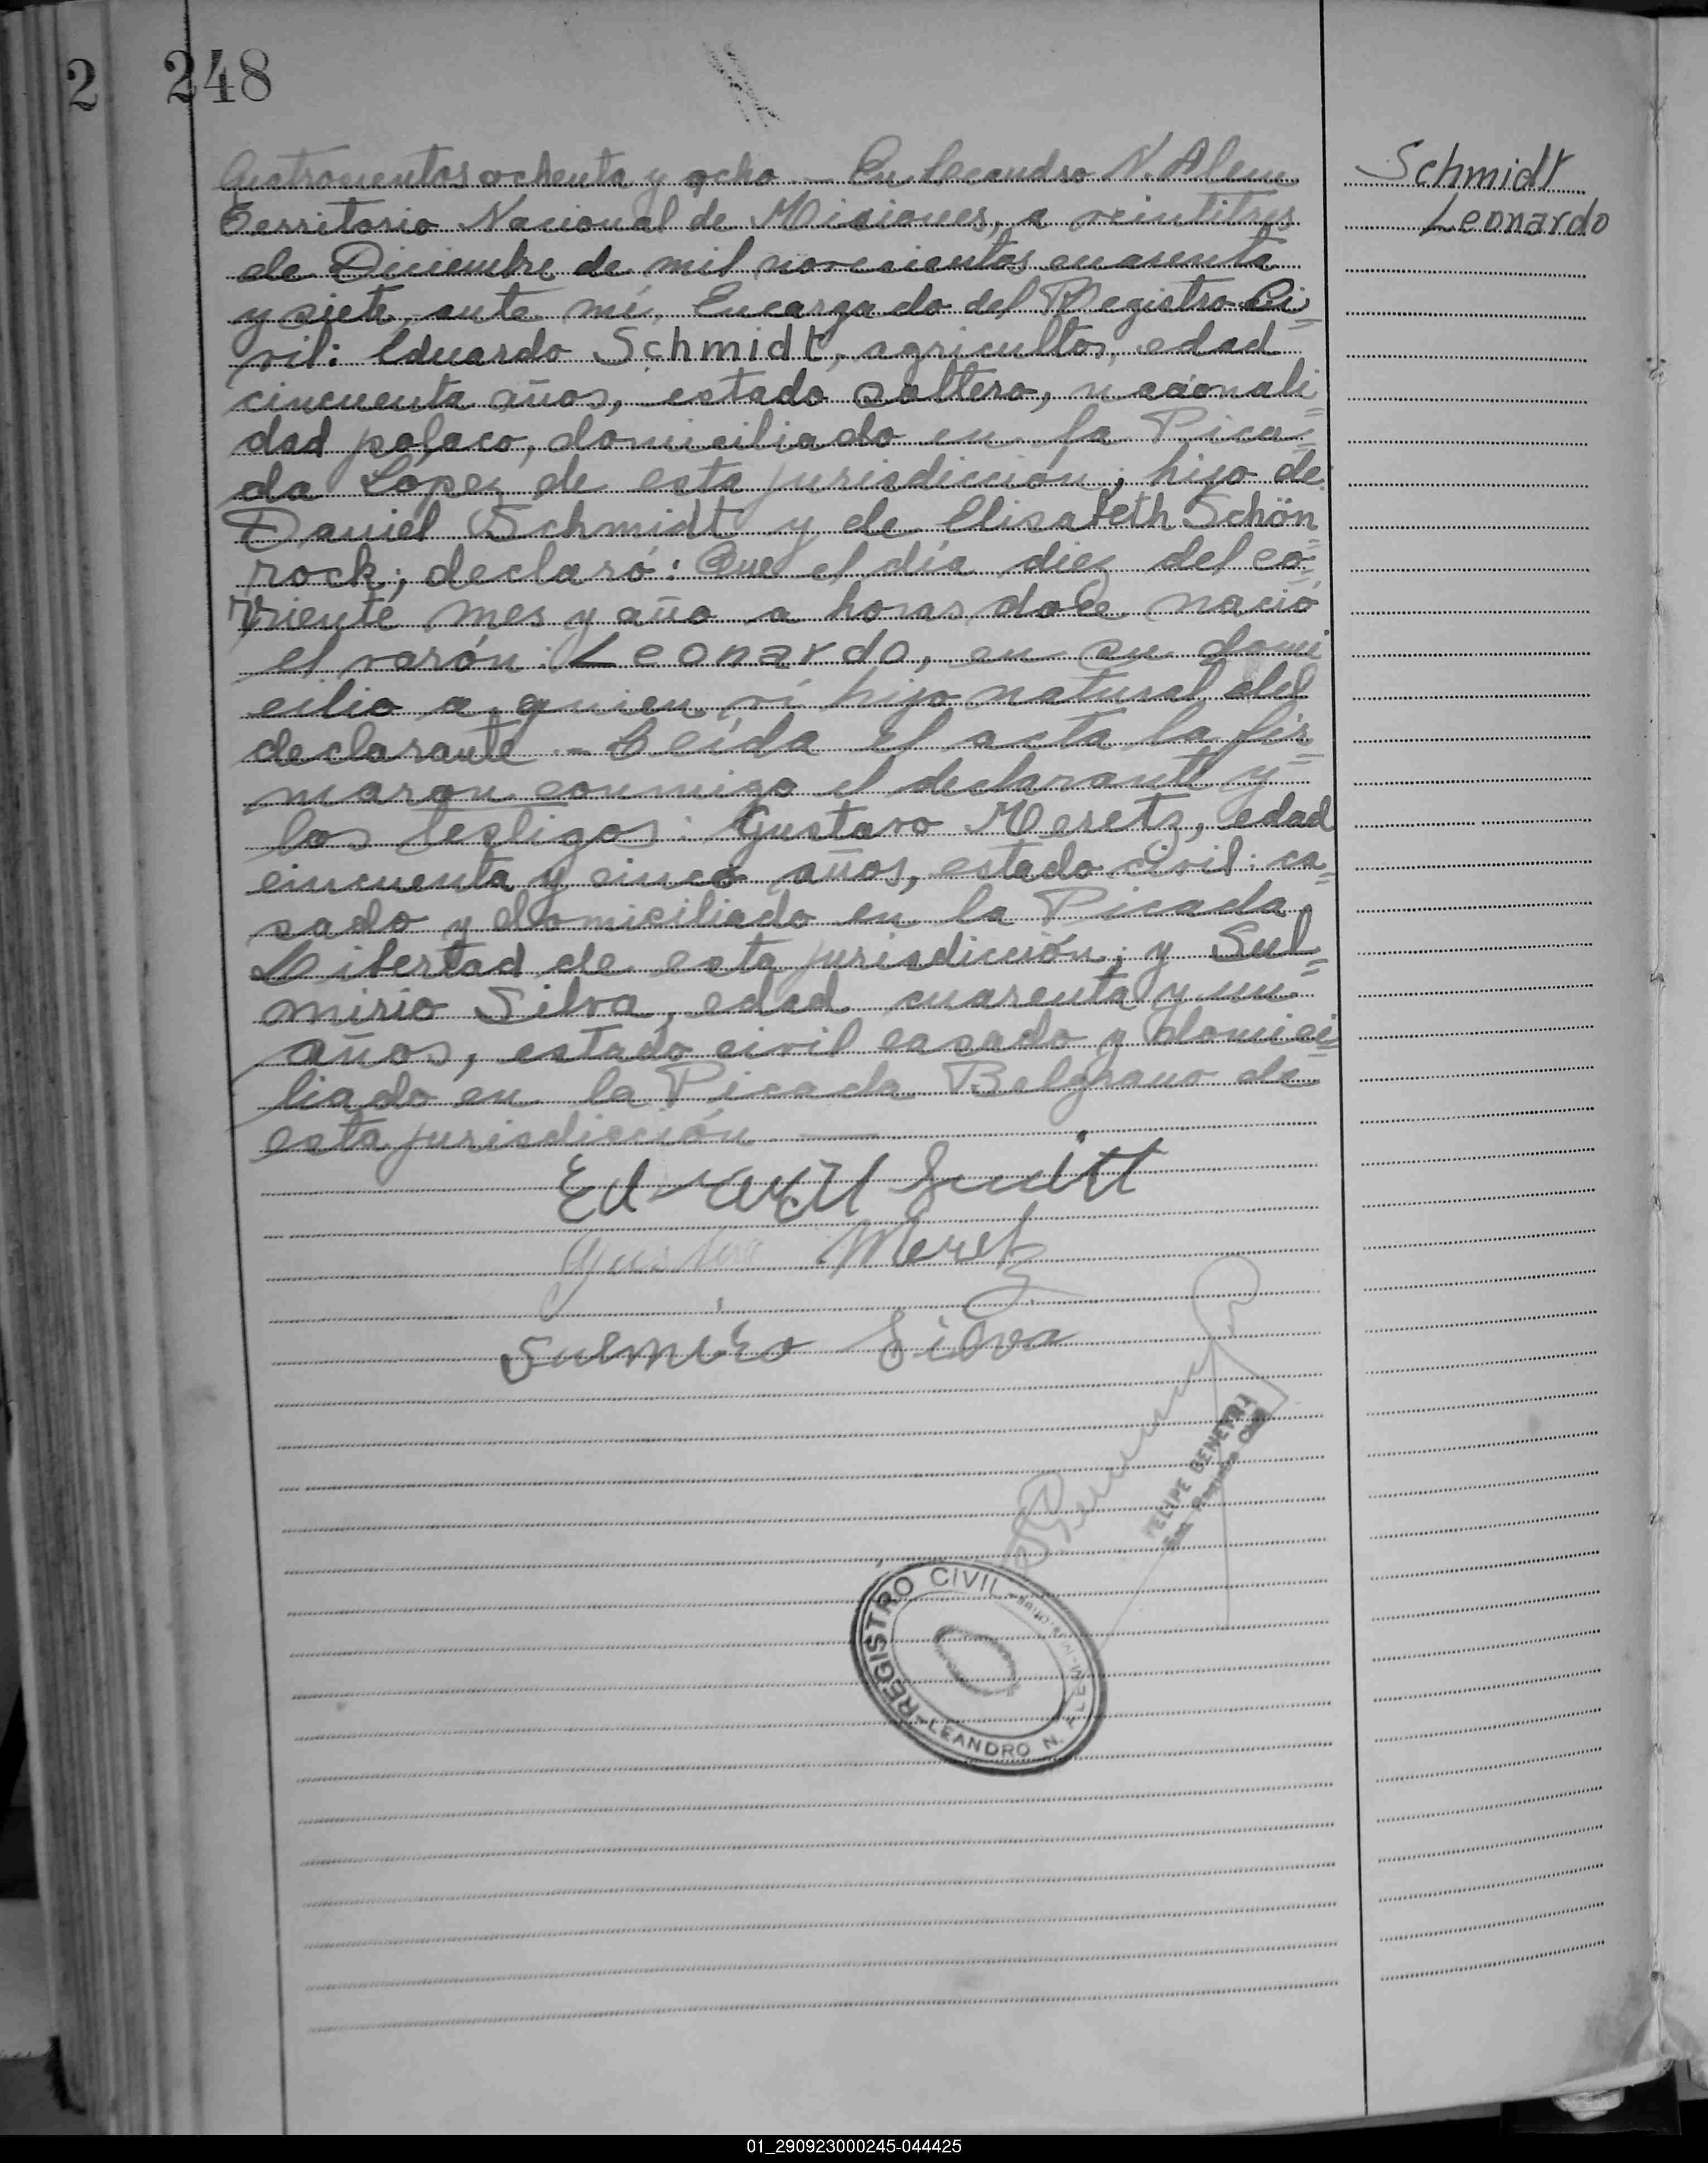 2 248
Cuatrocientos ochenta y ocho.— En Leandro N. Alem
Territorio Nacional de Misiones, a veintitres
de Diciembre de mil novecientos cuarenta
y siete, ante mí, Encargado del Registro Ci=
vil: Eduardo Schmidt, agricultor, edad
cincuenta años, estado soltero, nacionali=
dad polaco, domiciliado en la Pica=
da López de esta jurisdicción; hijo de
Daniel Schmidt y de Elisabeth Schön=
rock; declaró: Que el día diez del co=
rriente mes y año a horas doce nació
el varón: Leonardo, en su domi
cilio a quien ví hijo natural del
declarante.- Leída el acta la fir=
maron conmigo el declarante y
los testigos: Gustavo Meretz, edad
cincuenta y cinco años, estado civil: ca=
sado y domiciliado en la Picada
Libertad de esta jurisdicción; y Sul=
mirio Silva, edad cuarenta y un
años, estado civil casado y domici=
liado en la Picada Belgrano de
esta jurisdicción —
Schmidt
Leonardo
Gustav Meretz
Sulmiro Silva
FELIPE
Enc. Registro Civil
REGISTRO CIVIL
LEANDRO N. ALEM
01_290923000245-044425